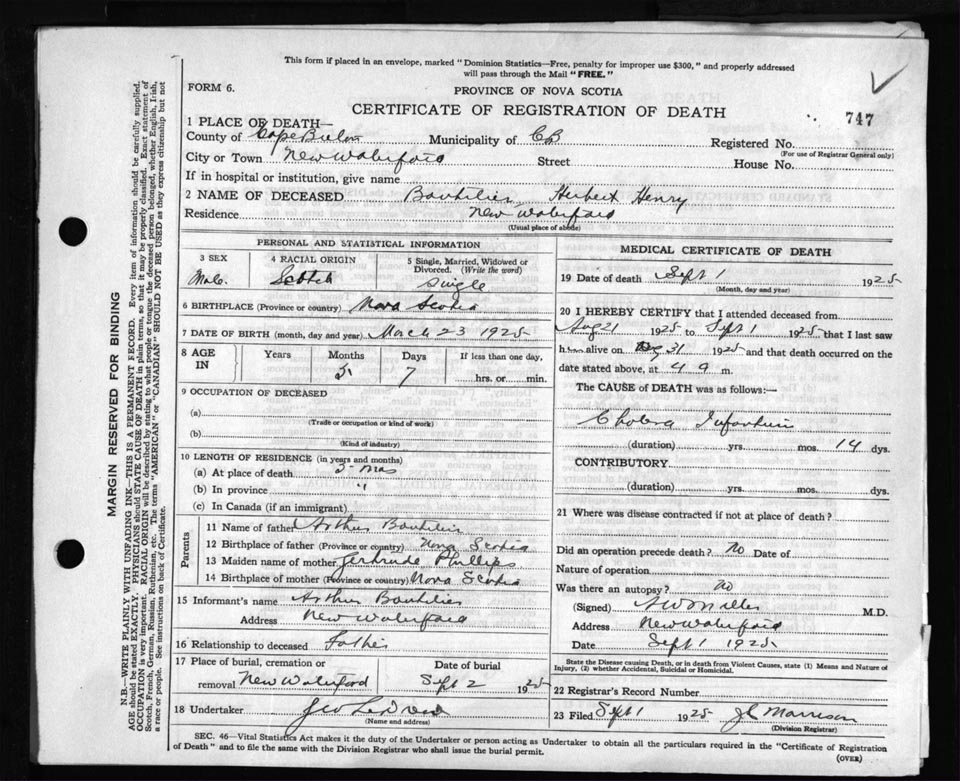 This form if placed in an envelope, marked "Dominion Statistics—Free, penalty for improper use $300," and properly addressed
will pass through the Mail "FREE."
FORM 6.
PROVINCE OF NOVA SCOTIA
CERTIFICATE OF REGISTRATION OF DEATH
747
1 PLACE OF DEATH—
County of Cape Breton Municipality of CB Registered No.
(For use of Registrar General only)
City or Town New Waterford Street House No.
If in hospital or institution, give name
2 NAME OF DECEASED Boutilier Hubert Henry
Residence New Waterford
(Usual place of abode)
PERSONAL AND STATISTICAL INFORMATION
3 SEX
Male.
4 RACIAL ORIGIN
Scotch
5 Single, Married, Widowed or Divorced. (Write the word)
Single
6 BIRTHPLACE (Province or country) Nova Scotia
7 DATE OF BIRTH (month, day and year) March 23 1925
8 AGE IN Years Months Days If less than one day,
5 7 hrs. or min.
9 OCCUPATION OF DECEASED
(a)
(Trade or occupation or kind of work)
(b)
(Kind of industry)
10 LENGTH OF RESIDENCE (in years and months)
(a) At place of death 5 mos
(b) In province "
(c) In Canada (if an immigrant)
Parents
11 Name of father Arthur Boutilier
12 Birthplace of father (Province or country) Nova Scotia
13 Maiden name of mother Gertrude Phillips
14 Birthplace of mother (Province or country) Nova Scotia
15 Informant's name Arthur Boutilier
Address New Waterford
16 Relationship to deceased Father
17 Place of burial, cremation or removal New Waterford
Date of burial
Sept 2 1925
18 Undertaker
(Name and address)
MEDICAL CERTIFICATE OF DEATH
19 Date of death Sept 1 1925
(Month, day and year)
20 I HEREBY CERTIFY that I attended deceased from
Aug 21 1925 to Sept 1 1925 that I last saw
h alive on Aug 31 1925 and that death occurred on the
date stated above, at 4 a m.
The CAUSE of DEATH was as follows:—
Cholera Infantum
(duration) yrs. mos. 14 dys.
CONTRIBUTORY
(duration) yrs. mos. dys.
21 Where was disease contracted if not at place of death?
Did an operation precede death? No Date of
Nature of operation
Was there an autopsy? No
(Signed) M.D.
Address New Waterford
Date Sept 1 1925
State the Disease causing Death, or in death from Violent Causes, state (1) Means and Nature of
Injury, (2) whether Accidental, Suicidal or Homicidal.
22 Registrar's Record Number
23 Filed Sept 1 1925 J C Morrison
(Division Registrar)
SEC. 46—Vital Statistics Act makes it the duty of the Undertaker or person acting as Undertaker to obtain all the particulars required in the "Certificate of Registration
of Death" and to file the same with the Division Registrar who shall issue the burial permit.
(OVER)
MARGIN RESERVED FOR BINDING
N.B.—WRITE PLAINLY WITH UNFADING INK—THIS IS A PERMANENT RECORD. Every item of information should be carefully supplied.
AGE should be stated EXACTLY. PHYSICIANS should STATE CAUSE OF DEATH in plain terms, so that it may be properly classified. Exact statement of
OCCUPATION is very important. RACIAL ORIGIN will be described by stating to what people or tongue the deceased person belonged, whether English, Irish,
Scotch, French, German, Russian, Ruthenian, etc. The terms "AMERICAN" or "CANADIAN" SHOULD NOT BE USED as they express citizenship but not
a race or people. See instructions on back of Certificate.